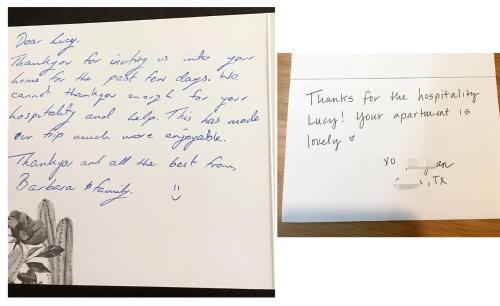 Dear Lucy,
Thankyou for inviting us into your
home for the past few days. We
cannot thankyou enough for your
hospitality and help. This has made
our trip much more enjoyable.
Thankyou and all the best from,
Barbara & family. :)
Thanks for the hospitality
Lucy! Your apartment is
lovely
xo an
, TX